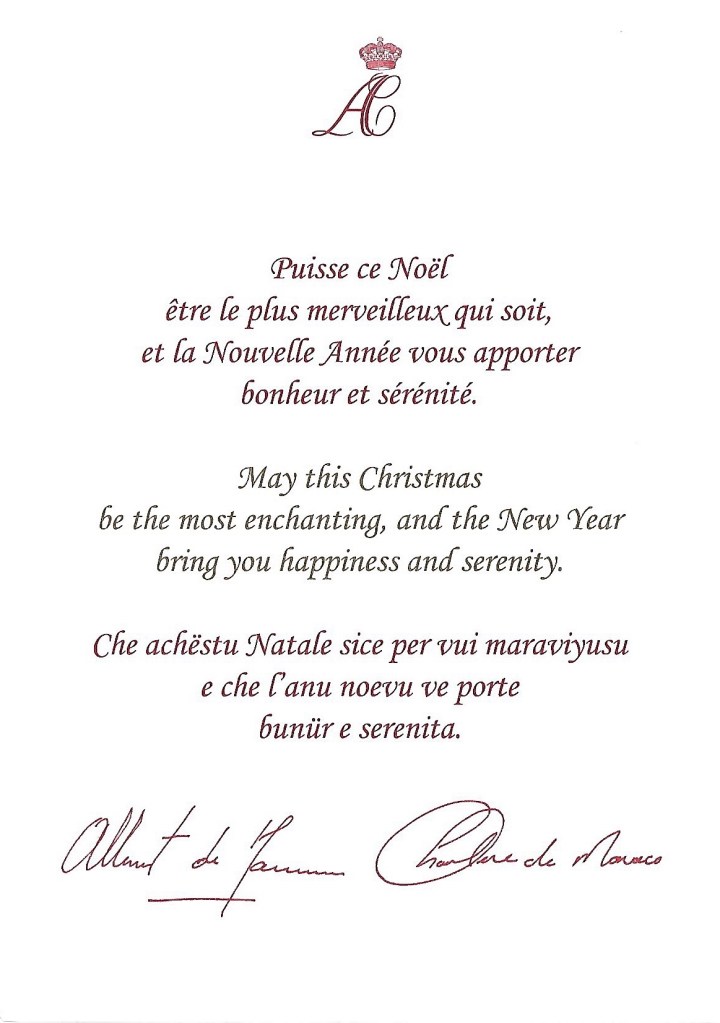 AC
Puisse ce Noël
être le plus merveilleux qui soit,
et la Nouvelle Année vous apporter
bonheur et sérénité.
May this Christmas
be the most enchanting, and the New Year
bring you happiness and serenity.
Che achëstu Natale sice per vui maraviyusu
e che l'anu noevu ve porte
bunür e serenita.
Albert de Monaco Charlene de Monaco